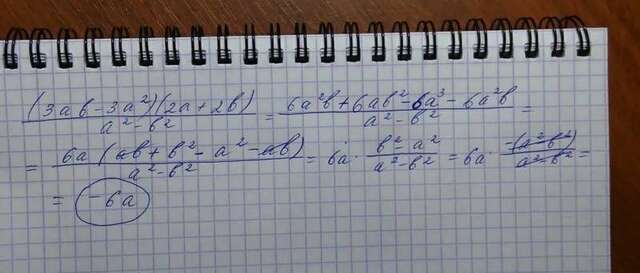 (3ab-3a²)(2a+2b)/a²-b² = 6a²b+6ab²-6a³-6a²b/a²-b² =
= 6a(ab+b²-a²-ab)/a²-b² = 6a · b²-a²/a²-b² = 6a · -(a²-b²)/a²-b² =
= -6a